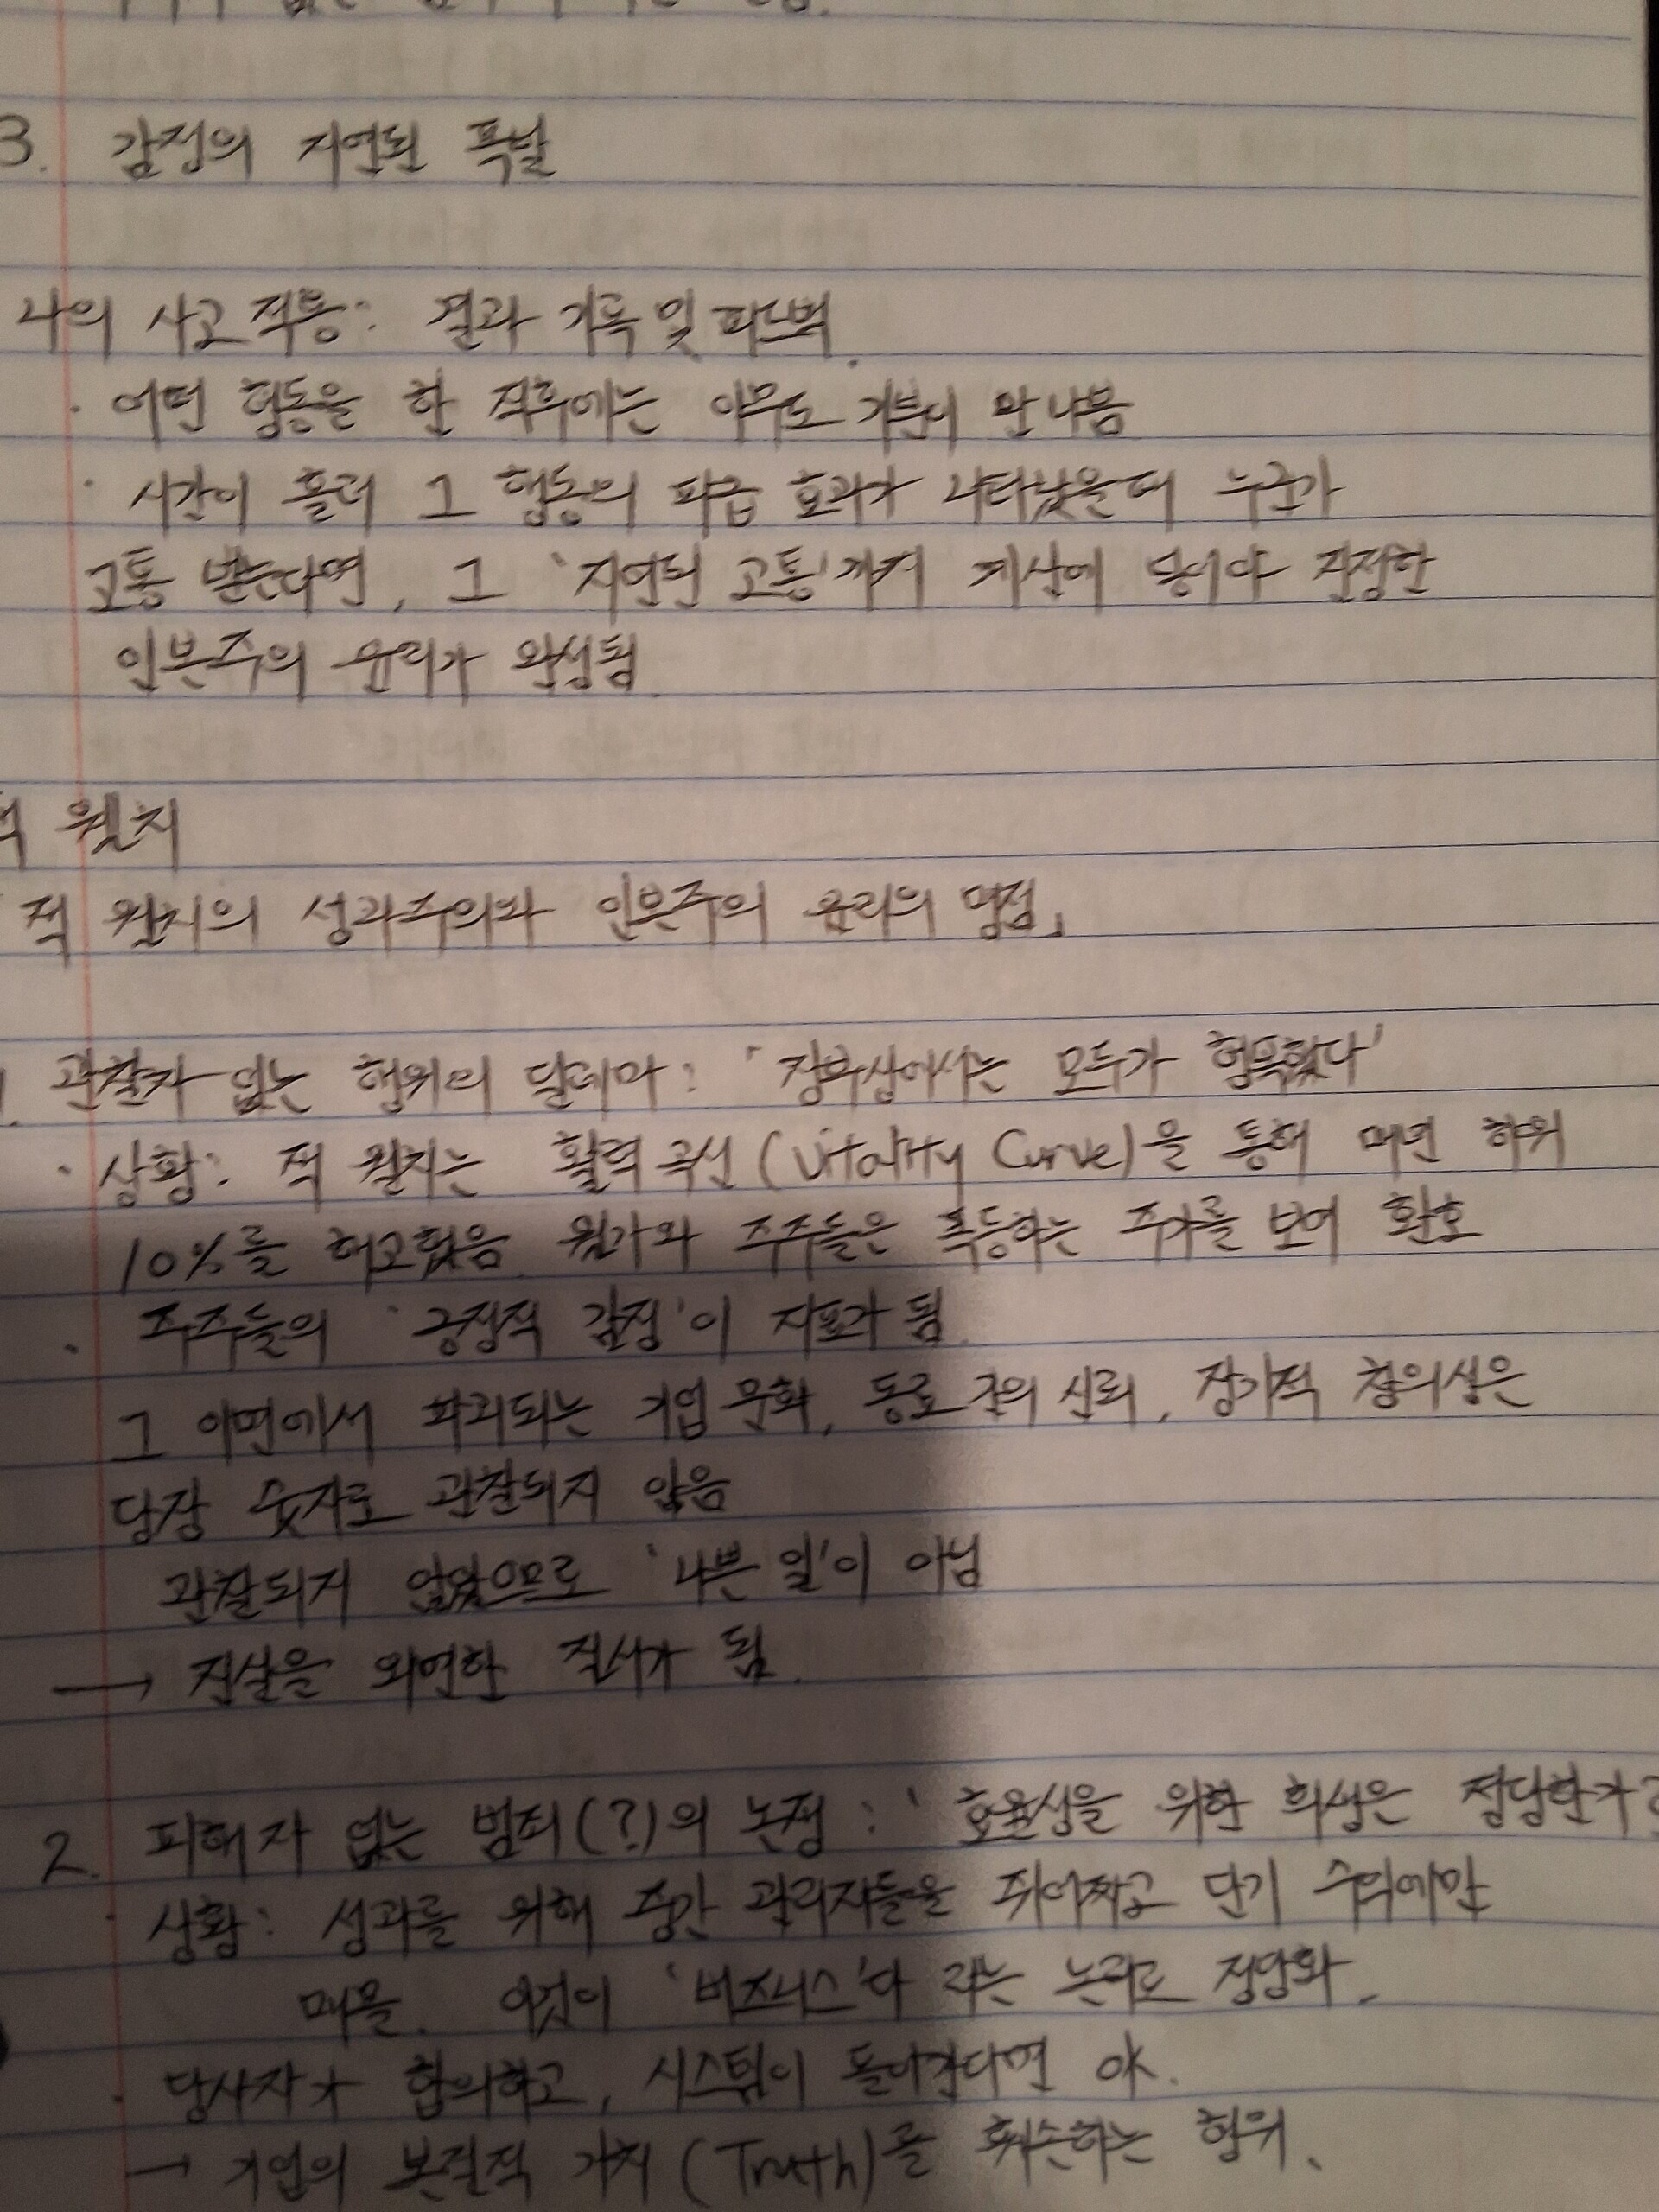 3. 감정의 지연된 폭발
나의 사고 적용: 결과 기록 및 피드백.
· 어떤 행동을 한 직후에는 아무도 기분이 안 나쁨
· 시간이 흘러 그 행동의 파급 효과가 나타났을 때 누군가
고통 받는다면, 그 '지연된 고통'까지 계산에 넣어야 진정한
인본주의 윤리가 완성됨.
잭 웰치
잭 웰치의 성과주의와 인본주의 윤리의 맹점」
1. 관찰자 없는 행위의 딜레마: '장부상에서는 모두가 행복했다'
· 상황: 잭 웰치는 활력 곡선(Vitality Curve)을 통해 매년 하위
10%를 해고했음. 월가와 주주들은 폭등하는 주가를 보며 환호
· 주주들의 '긍정적 감정'이 지표가 됨.
그 이면에서 파괴되는 기업 문화, 동료 간의 신뢰, 장기적 창의성은
당장 숫자로 관찰되지 않음
관찰되지 않았으므로 '나쁜 일'이 아님
→ 진실을 외면한 질서가 됨.
2. 피해자 없는 범죄(?)의 논쟁: '효율성을 위한 희생은 정당한가?
· 상황: 성과를 위해 중간 관리자들을 쥐어짜고 단기 수익에만
매몰. 이것이 '비즈니스'다 라는 논리로 정당화.
· 당사자가 합의하고, 시스템이 돌아간다면 OK.
→ 기업의 본질적 가치(Truth)를 훼손하는 행위.